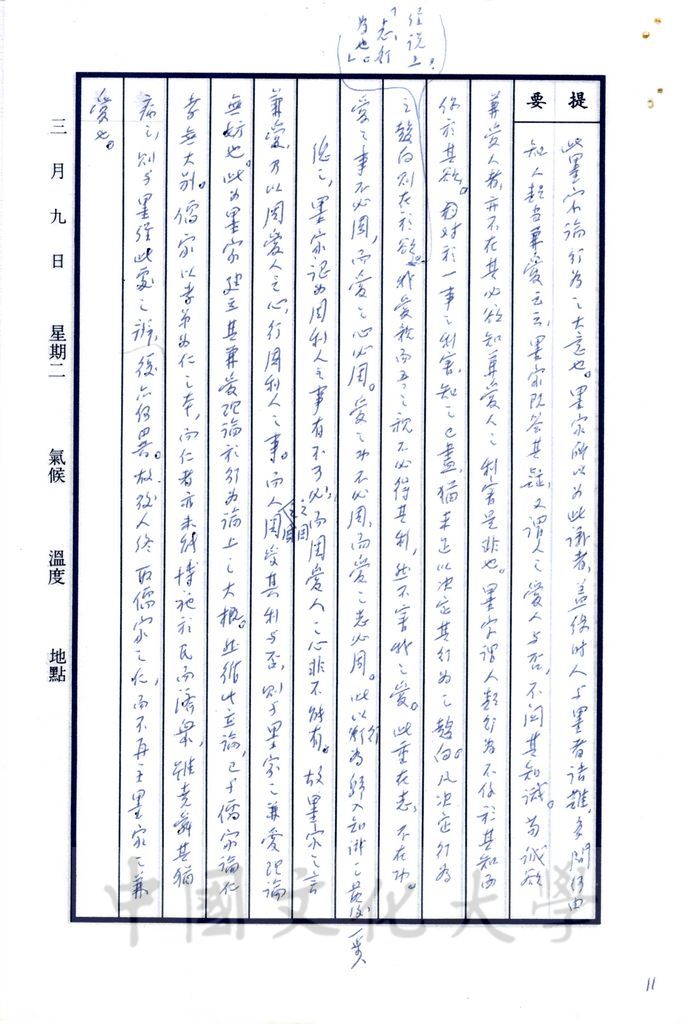 經說上:
「志行,
為也。」
提要
此墨家論行為之大意也。墨家所以為此論者,蓋緣時人與墨者詰難,多問何由
知人起與兼愛云云,墨家既答其疑,又謂人之愛人與否,不關其知識。苟誠欲
兼愛人者,亦不在其必欲知兼愛人之利害是非也。墨家謂人起行為不係於其知而
係於其欲。因對於一事之利害,知之已盡,猶未足以決定其行為之趨向。凡決定行為
之趨向則在於欲。我愛親而吾之親不必得其利,然不害我之愛。此重在志,不在功。
愛之事不必周,而愛之心必周。愛之功不必周,而愛之志必周。此以行為歸入知識之最後一義
總之,墨家認為周利人之事有不可必,而周愛人之心非不能有。故墨家之言
兼愛,乃以周愛人之心,行周利人之事。而人之周受其利與否,則與墨家之兼愛理論
無妨也。此為墨家建立其兼愛理論於行為論上之大概。然循此立論,已與儒家論仁
孝無大別。儒家以孝弟為仁之本,而仁者亦未能博施於民而濟眾,雖堯舜其猶
病之,則與墨經此處之辨,後亦何異。故後人終取儒家之仁,而不再主墨家之兼
愛也。
三月九日 星期二 氣候 溫度 地點
中國文化大學
11